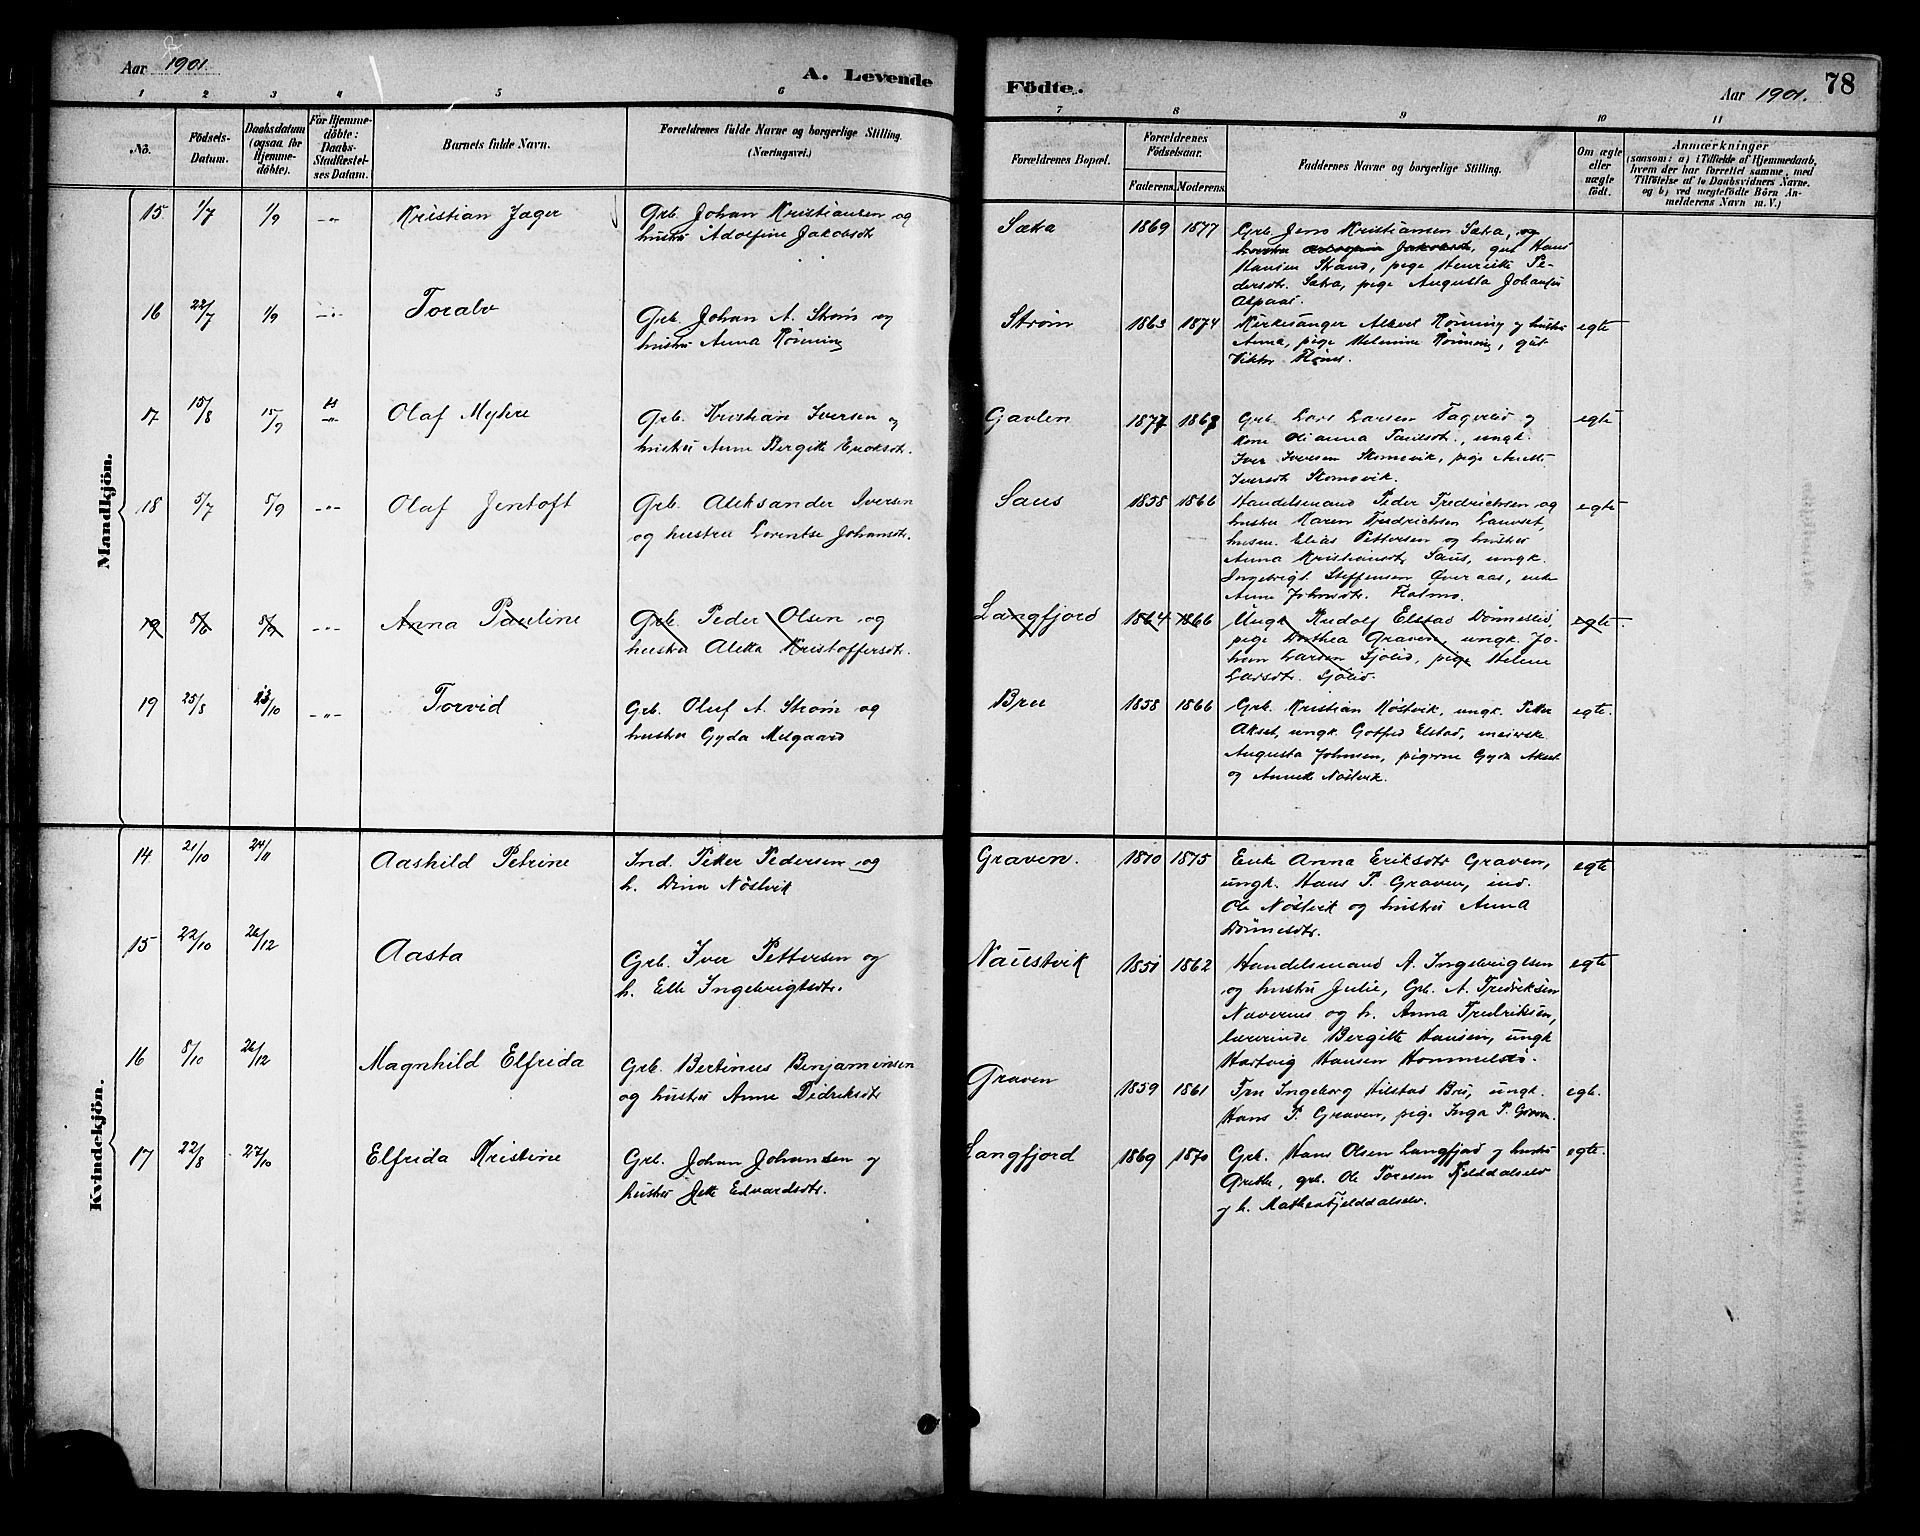 Aar 1901.
A. Levende
1 2 3 4 5 6
No.
Födsels-
Datum.
Daabsdatum
(ogsaa for
Hjemme-
döbte).
For Hjemme-
döbte:
Daabs-
Stadfæstel-
ses Datum.
Barnets fulde Navn.
Forældrenes fulde Navne og borgerlige Stilling.
(Næringsvei.)
Mandkjön.
15 1/7 1/9 -"- Kristian Jager Grb. Johan Kristiansen og
hustru Adolfine Jakobsdt
16 22/7 1/9 -"- Toralv Grb. Johan A. Strøm og
hustru Anna Rönning
17 15/8 15/9 -"- Olaf Myhre Grb. Kristian Iversen og
hustru Anne Bergitte Enoksdt.
18 5/7 8/9 -"- Olaf Jentoft Grb. Aleksander Iversen
og hustru Lorentse Johansdt.
19 5/6 8/9 -"- Anna Pauline Grb. Peder Olsen og
hustru Aleka Kristoffersdt.
19 25/8 13/10 -"- Torvid Grb. Oluf A. Strøm og
hustru Gyda Melgaard
Kvindekjön.
14 21/10 24/11 Aashild Petrine Ind. Petter Pedersen og
h. Dina Nöstvik
15 22/10 26/12 Aasta Grb. Iver Pettersen og
h. Elle Ingebrigtsdtr.
16 8/10 26/12 Magnhild Elfrida Grb. Bertinus Benjaminsen
og hustru Anne Didriksdt
17 22/8 27/10 Elfrida Kristine Grb. Johan Johansen og
hustru Jette Edvardsdtr.
Födte.
Aar 1901. 78
7 8 9 10 11
Forældrenes Bopæl.
Forældrenes
Födselsaar.
Faderens. Moderens.
Faddernes Navne og borgerlige Stilling.
Om ægte
eller
uægte
födt.
Anmærkninger
(saasom: a) i Tilfælde af Hjemmedaab,
hvem der har forrettet samme, med
Tilföielse af to Daabsvidners Navne,
og b) ved uægtefödte Börn An-
melderens Navn m. V.)
Sætra 1869 1877 Grb. Jens Kristiansen Sætra, og
hustru Jakobsdt, gut Hans
Hansen Strand, pige Henrikke Pe-
dersdt. Sætra, pige Augusta Johansen
Aspaas.
Strøm 1863 1874 Kirkesanger Rönning og hustru egte
Anna, pige Helmine Rönning, gut
Viktor
Gavlen 1877 1867 Grb. Lars Larsen Fagerlid og egte
Kone Olianna Paulsdt., ungk.
Iver Iversen Skomovik, pige Anette
Iversdt Skomovik.
Saus 1858 1866 Handelsmand Peder Fredrichsen og egte
hustru Maren Fredrichsen Lauvset,
husm. Elias Pettersen og hustru
Anna Kristiansdt Saus, ungk.
Ingebrigt Steffensen Överaas, enke
Anne Johnsdt. Holmo.
Langfjord 1864 1866 Ungk Rudolf Elstad Dönneslid, egte.
pige Dorthea Graven, ungk. Jo-
han Larsen Sjölid, pige Helene
Larsdt. Sjölid.
Bru 1858 1866 Grb. Kristian Nöstvik, ungk. Petter egte.
Akset, ungk. Gotfred Elstad, meierske
Augusta Johnsen, pigerne Gyda Akset
og Annette Nöstvik.
Graven. 1870 1875 Enke Anna Eriksdtr Graven, egte
ungk. Hans P. Graven, ind.
Ole Nöstvik og hustru Anna
Dönnesdtr.
Naustvik 1851 1862 Handelsmand A. Ingebrigtsen egte
og hustru Julie, Grb. A. Fredriksen
Navernes og h. Anna Fredriksen,
lærerinde Bergitte Hansen, ungk
Hartvig Hansen Hommelstö.
Graven 1859 1861 Fru Ingeborg Hilstad Bru, ungk. egte.
Hans P. Graven, pige Inga P. Graven
Langfjord 1869 1870 Grb. Hans Olsen Langfjord og hustru egte.
Grethe, grb. Ole Toresen Fjelddalselv
og h. Mathea Fjelddalselv.